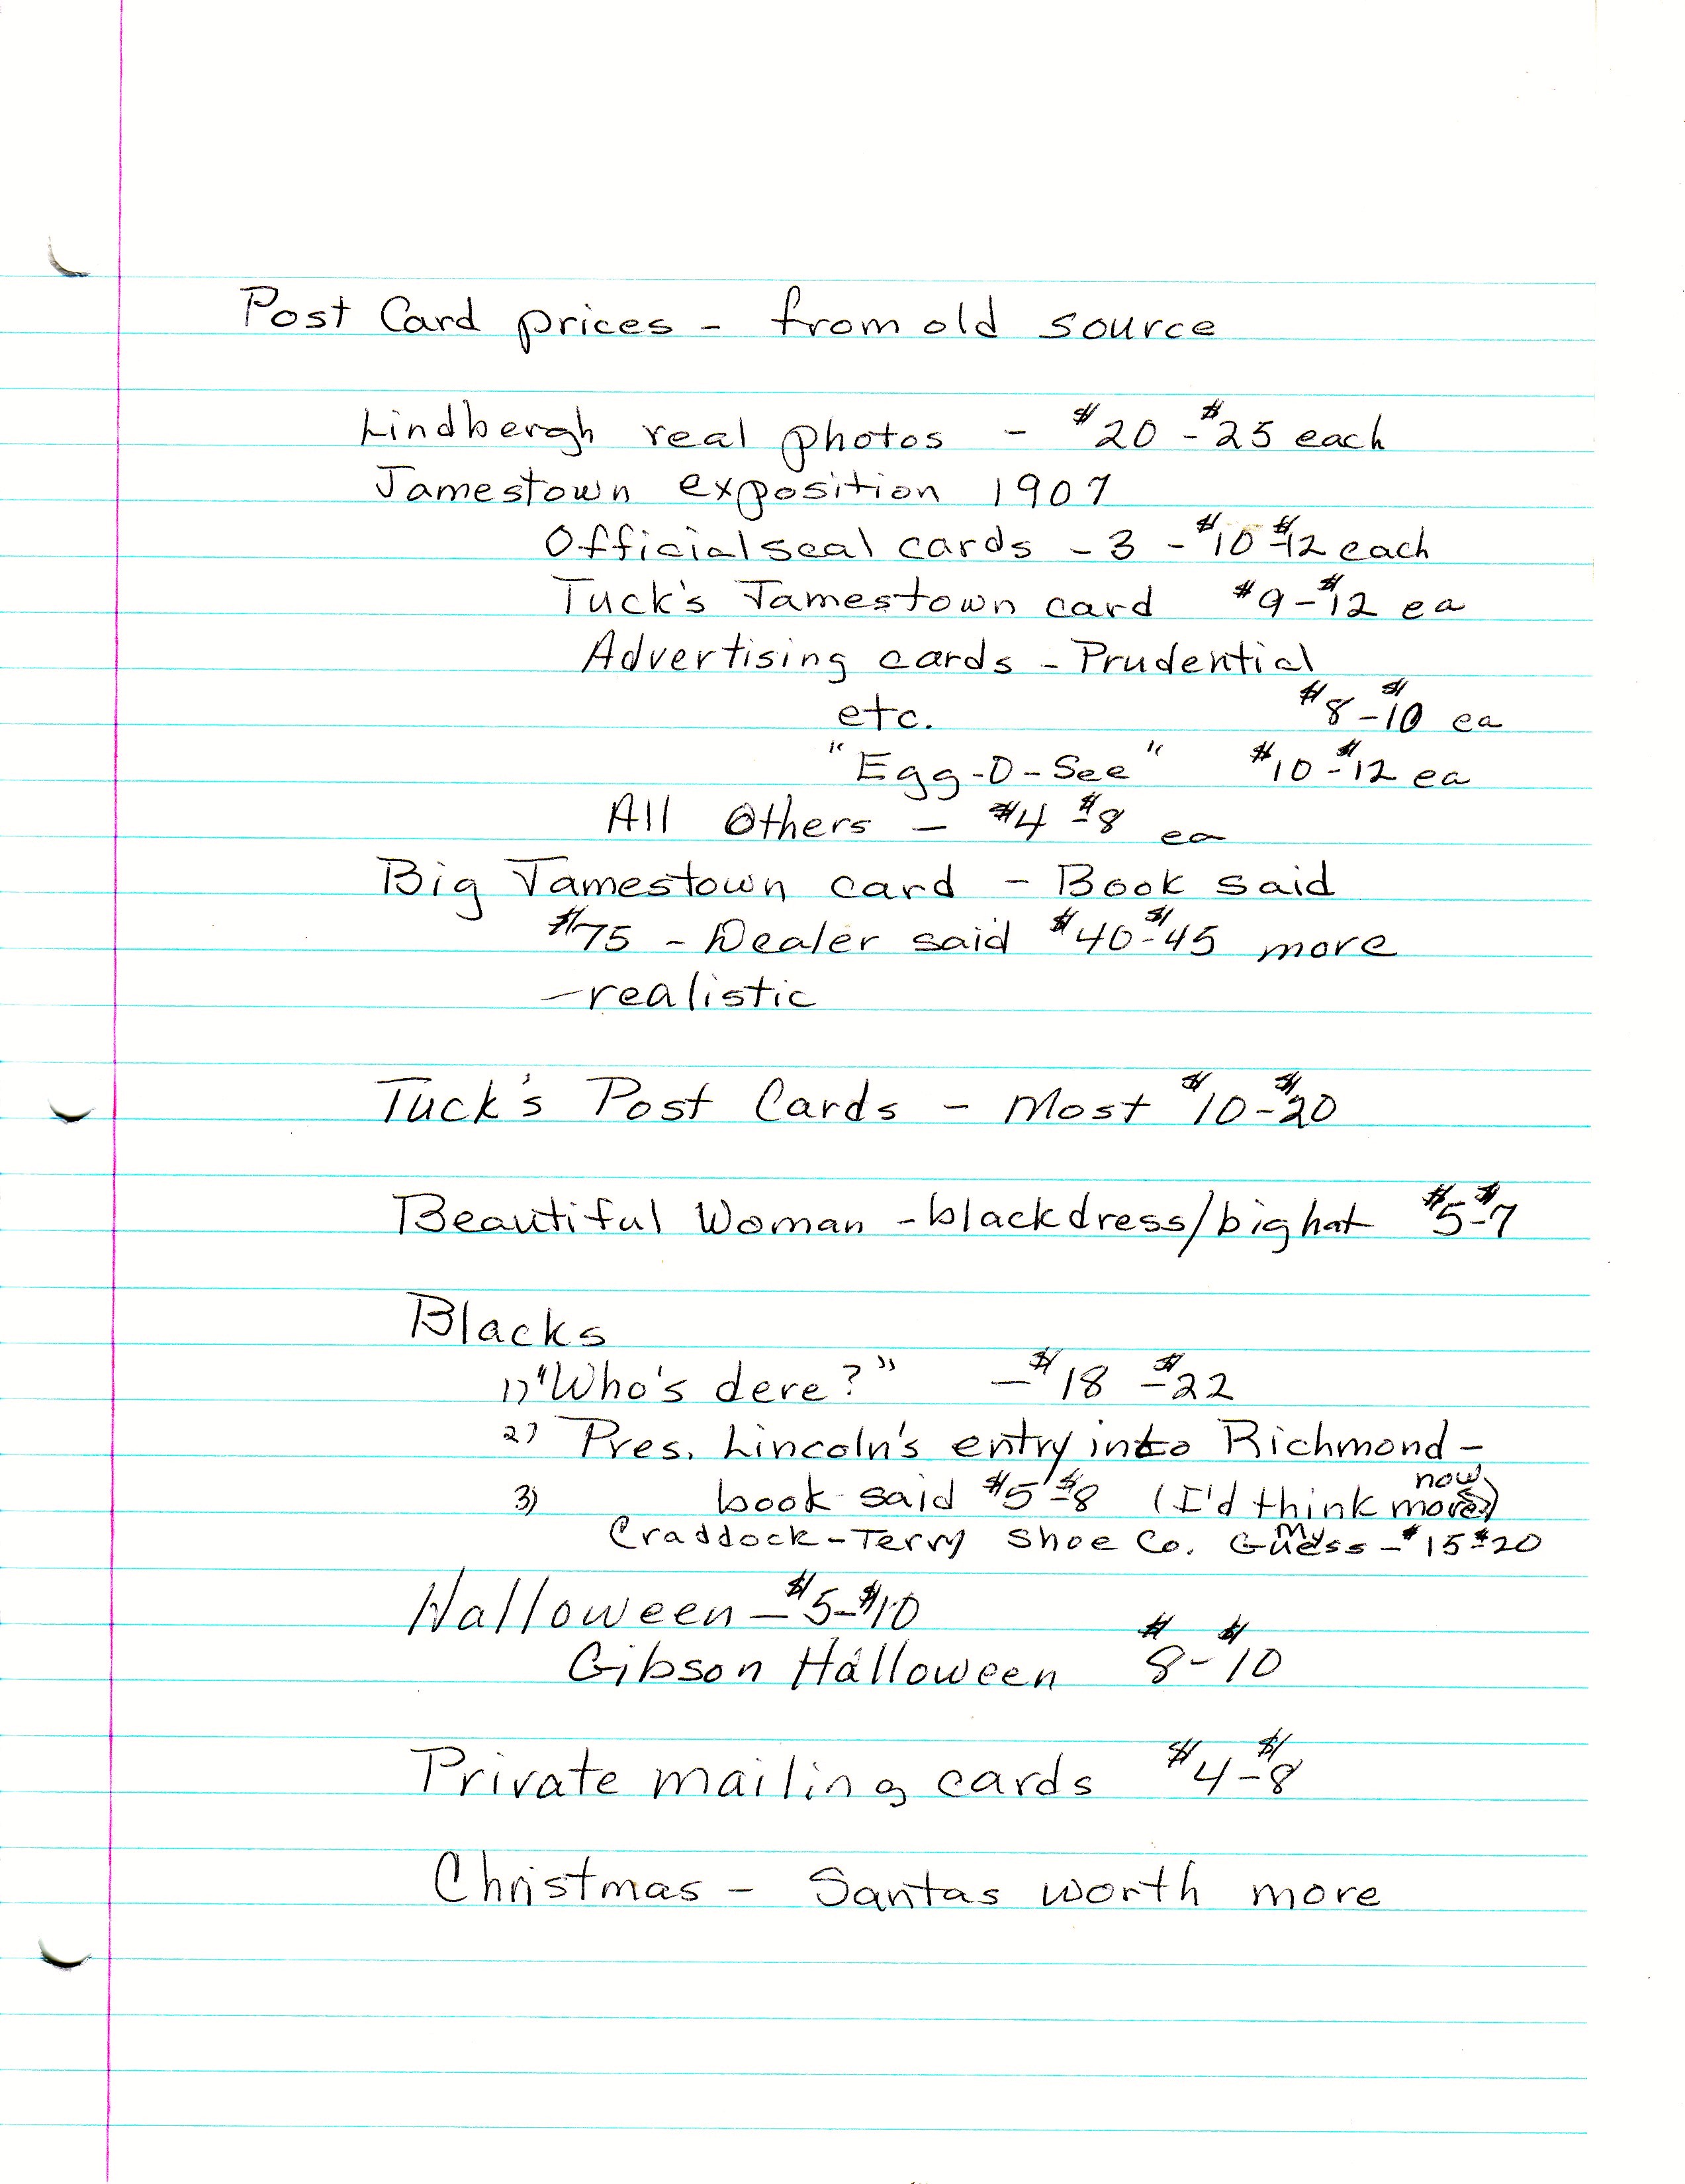 Post Card prices - from old source
Lindbergh real photos - $20 - $25 each
Jamestown exposition 1907
Official seal cards - 3 - $10 - $12 each
Tuck's Jamestown card $9 - $12 ea
Advertising cards - Prudential
etc. $8 - $10 ea
"Egg-O-See" $10 - $12 ea
All Others - $4 - $8 ea
Big Jamestown card - Book said
$75 - Dealer said $40 - $45 more
- realistic
Tuck's Post Cards - Most $10 - $20
Beautiful Woman - black dress/big hat $5 - $7
Blacks
1) "Who's dere?" - $18 - $22
2) Pres. Lincoln's entry into Richmond -
3) book said $5 - $8 (I'd think more now)
Craddock-Terry Shoe Co. My Guess - $15 - $20
Halloween - $5 - $10
Gibson Halloween $8 - $10
Private mailing cards $4 - $8
Christmas - Santas worth more